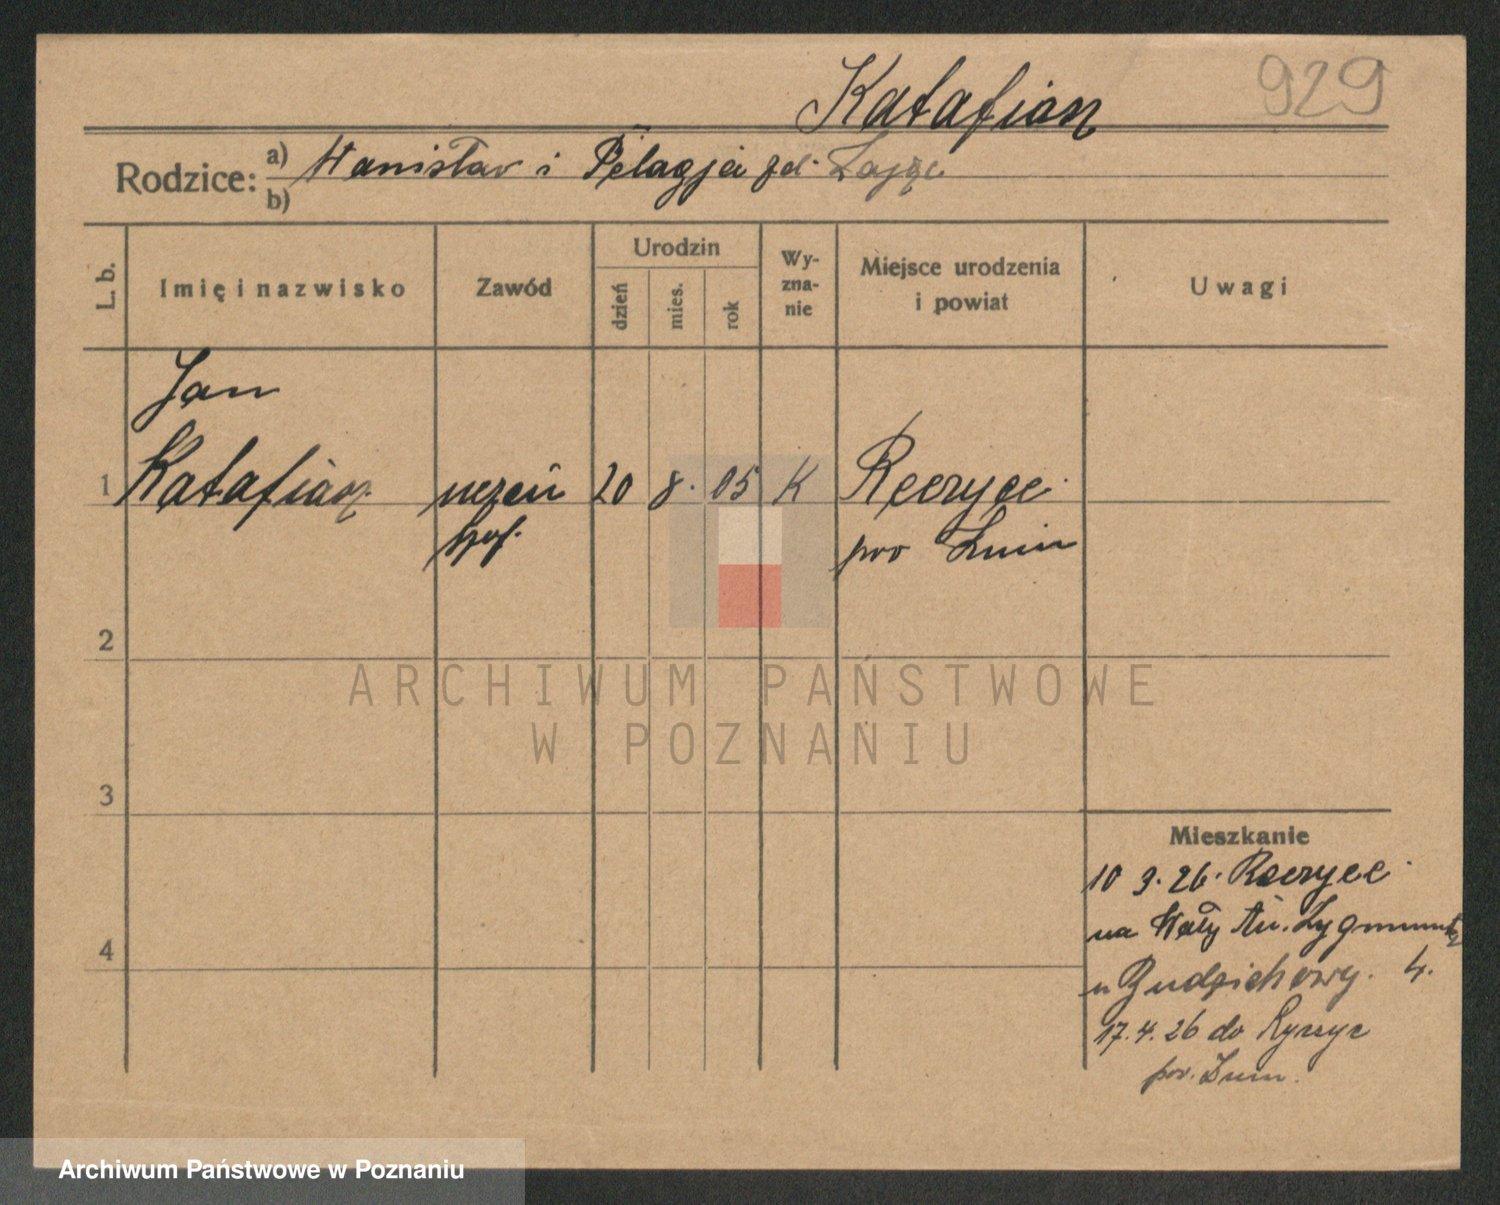 929
Katafiasz
Rodzice: a) Stanisław i Pelagja zd. Zając
b)
L. b.
Imię i nazwisko
Zawód
Urodzin
dzień
mies.
rok
Wy-
zna-
nie
Miejsce urodzenia
i powiat
Uwagi
Jan
1 Katafiasz uczeń 20 8. 05 K
pow Żnin
2
3
4
ARCHIWUM PAŃSTWOWE
W POZNANIU
Mieszkanie
10 3. 26.
na Wały Zygmunta
u 4.
17. 4. 26 do
pow. Żnin.
Archiwum Państwowe w Poznaniu